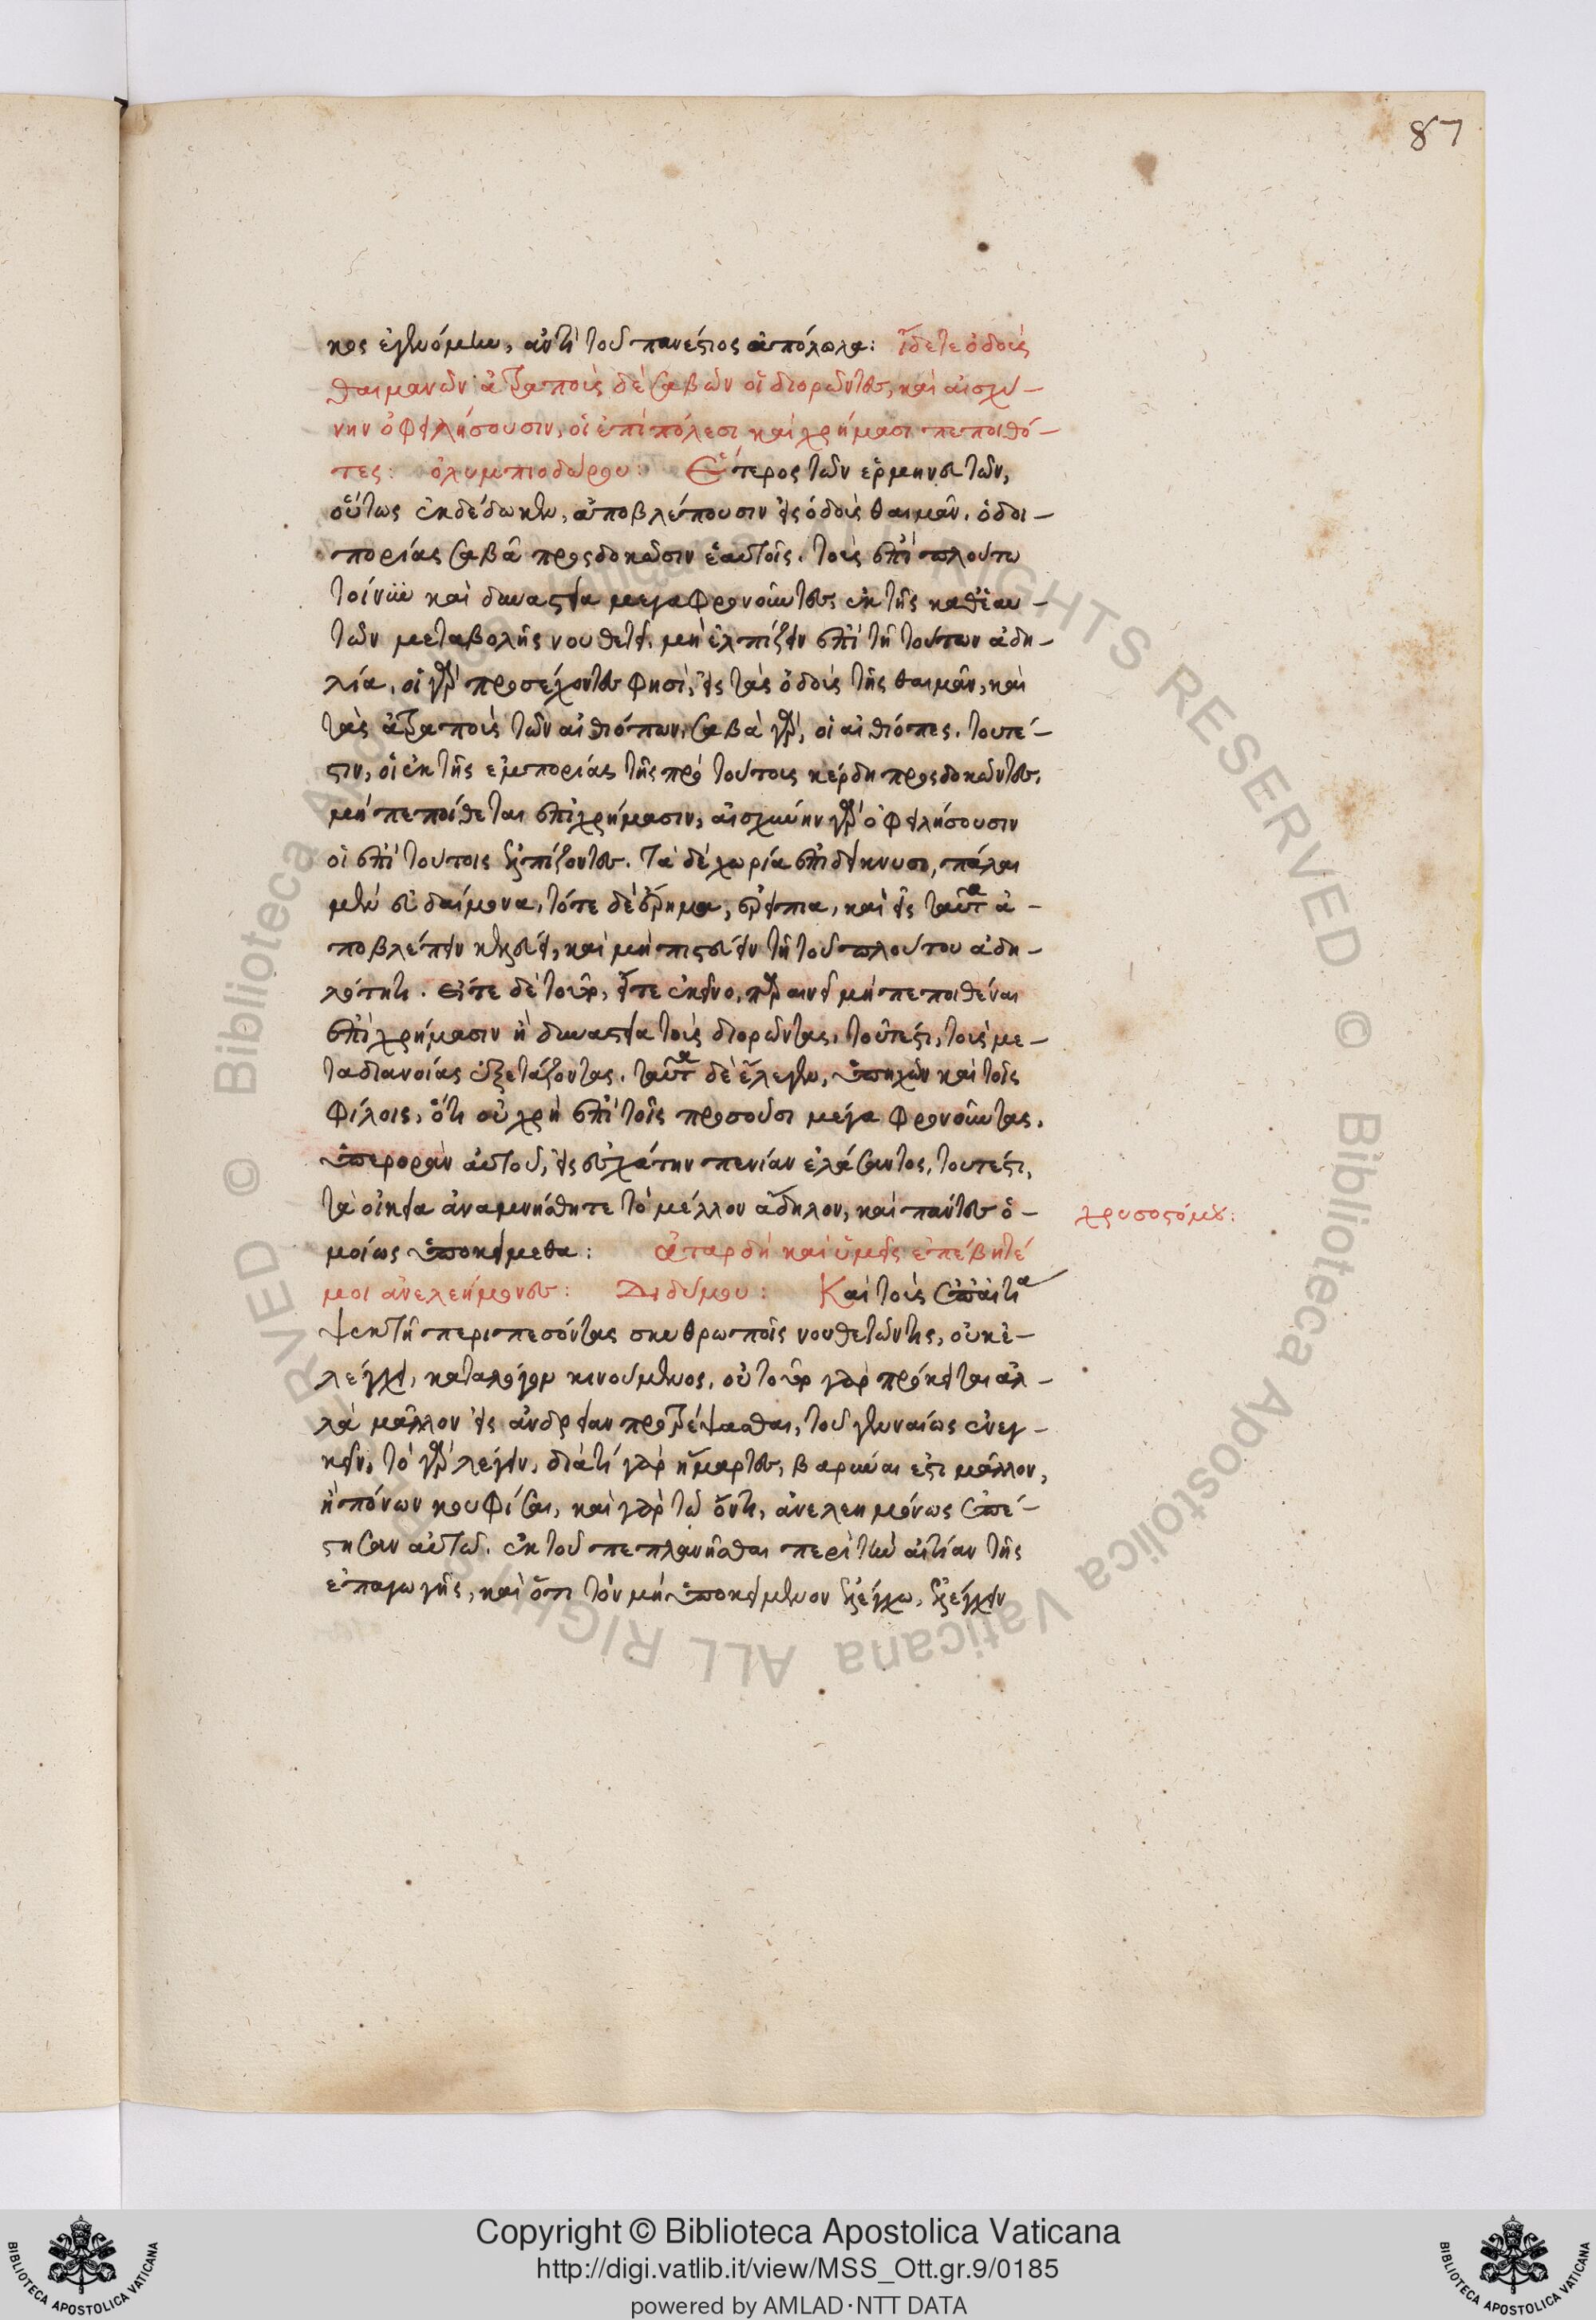 87
κος ἐγενόμην, ἀντὶ τοῦ πανέστιος ἀπόλωλα: ἴδετε ὁδοὺς
θαιμανῶν ἀτραποὺς δὲ σαβῶν οἱ διορῶντες, καὶ αἰσχύ-
νην ὀφειλήσουσιν, οἱ ἐπὶ πόλεσι καὶ χρήμασι πεποιθό-
τες: ὀλυμπιοδώρου: Ἕτερος τῶν ἑρμηνευτῶν,
οὕτως ἐκδέδωκεν, ἀποβλέπουσιν εἰς ὁδοὺς θαιμᾶν. ὁδοι-
πορίας σαβᾶ προσδοκῶσιν ἑαυτοῖς. τοὺς ἐπὶ πλούτω
τοίνυν καὶ δυναστεία μεγαφρονοῦντας ἐκ τῆς καθ' ἑαυ-
τῶν μεταβολῆς νουθετεῖ. μὴ ἐλπίζειν ἐπὶ τῆ τούτων ἀδη-
λία. οἱ γὰρ προσέχοντες φησὶ, εἰς τὰς ὁδοὺς τῆς θαιμᾶν, καὶ
τὰς ἀτραποὺς τῶν αἰθιόπων, σαβὰ γὰρ, οἱ αἰθιόπες. τουτέ-
στιν, οἱ ἐκ τῆς ἐμπορίας τῆς πρὸ τούτοις κέρδη προσδοκῶντες,
μὴ πεποίθεται ἐπὶ χρήμασιν, αἰσχύνην γὰρ ὀφειλήσουσιν
οἱ ἐπὶ τούτοις ἐλπίζοντες. Τὰ δὲ χωρία ἐπιδείκνυσι, πάλαι
μὲν εὐδαίμονα, τότε δὲ ἔρημα, ἐρείπια, καὶ εἰς ταῦτα ἀ-
ποβλέπειν κελεύει, καὶ μὴ πιστεύειν τῆ τοῦ πλούτου ἀδη-
λότητι. εἴτε δὲ τοῦτο, εἴτε ἐκεῖνο, παραινεῖ μὴ πεποιθέναι
ἐπὶ χρήμασιν ἢ δυναστεία τοὺς διορῶντας, τουτέστι, τοὺς με-
τὰ διανοίας ἐξετάζοντας. ταῦτα δὲ ἔλεγεν, ὑπηχῶν καὶ τοῖς
φίλοις, ὅτι οὐ χρὴ ἐπὶ τοῖς προσοῦσι μέγα φρονοῦντας,
ὑπερορᾶν αὐτοῦ, εἰς ἐσχάτην πενίαν ἐλάσαντος, τουτέστι,
τὰ οἰκεῖα ἀναμνήσθητε τὸ μέλλον ἄδηλον, καὶ πάντες ὁ-
χρυσοστόμου:
μοίως ὑποκείμεθα: ἀτὰρ δὴ καὶ ὑμεῖς ἐπέβητέ
μοι ἀνελεήμονες: Διδύμου: Καὶ τοὺς ἐπ' αἰτία
ψεκτῆ περιπεσόντας σκυθρωποῖς νουθετῶν τις, οὐκ ἐ-
λέγχει, καταλόγου κινούμενος, οὐ τοῦτο γὰρ πρόκειται ἀλ-
λὰ μᾶλλον εἰς ἀνδρείαν προτρέψασθαι, τοῦ γενναίως ἐνεγ-
κεῖν, τὸ γὰρ λέγειν, διὰ τί γὰρ ἥμαρτες, βαρῦναι ἐστι μᾶλλον,
ἢ πόνων κουφίσαι, καὶ γὰρ τῶ ὄντι, ἀνελεημόνως ἐπέ-
στησαν αὐτῶ. ἐκ τοῦ πεπλανῆσθαι περὶ τὴν αἰτίαν τῆς
ἐπαγωγῆς, καὶ ὅτι τὸν μὴ ὑποκείμενον ἐλέγχω, ἐλέγχειν
Copyright © Biblioteca Apostolica Vaticana
http://digi.vatlib.it/view/MSS_Ott.gr.9/0185
powered by AMLAD·NTT DATA